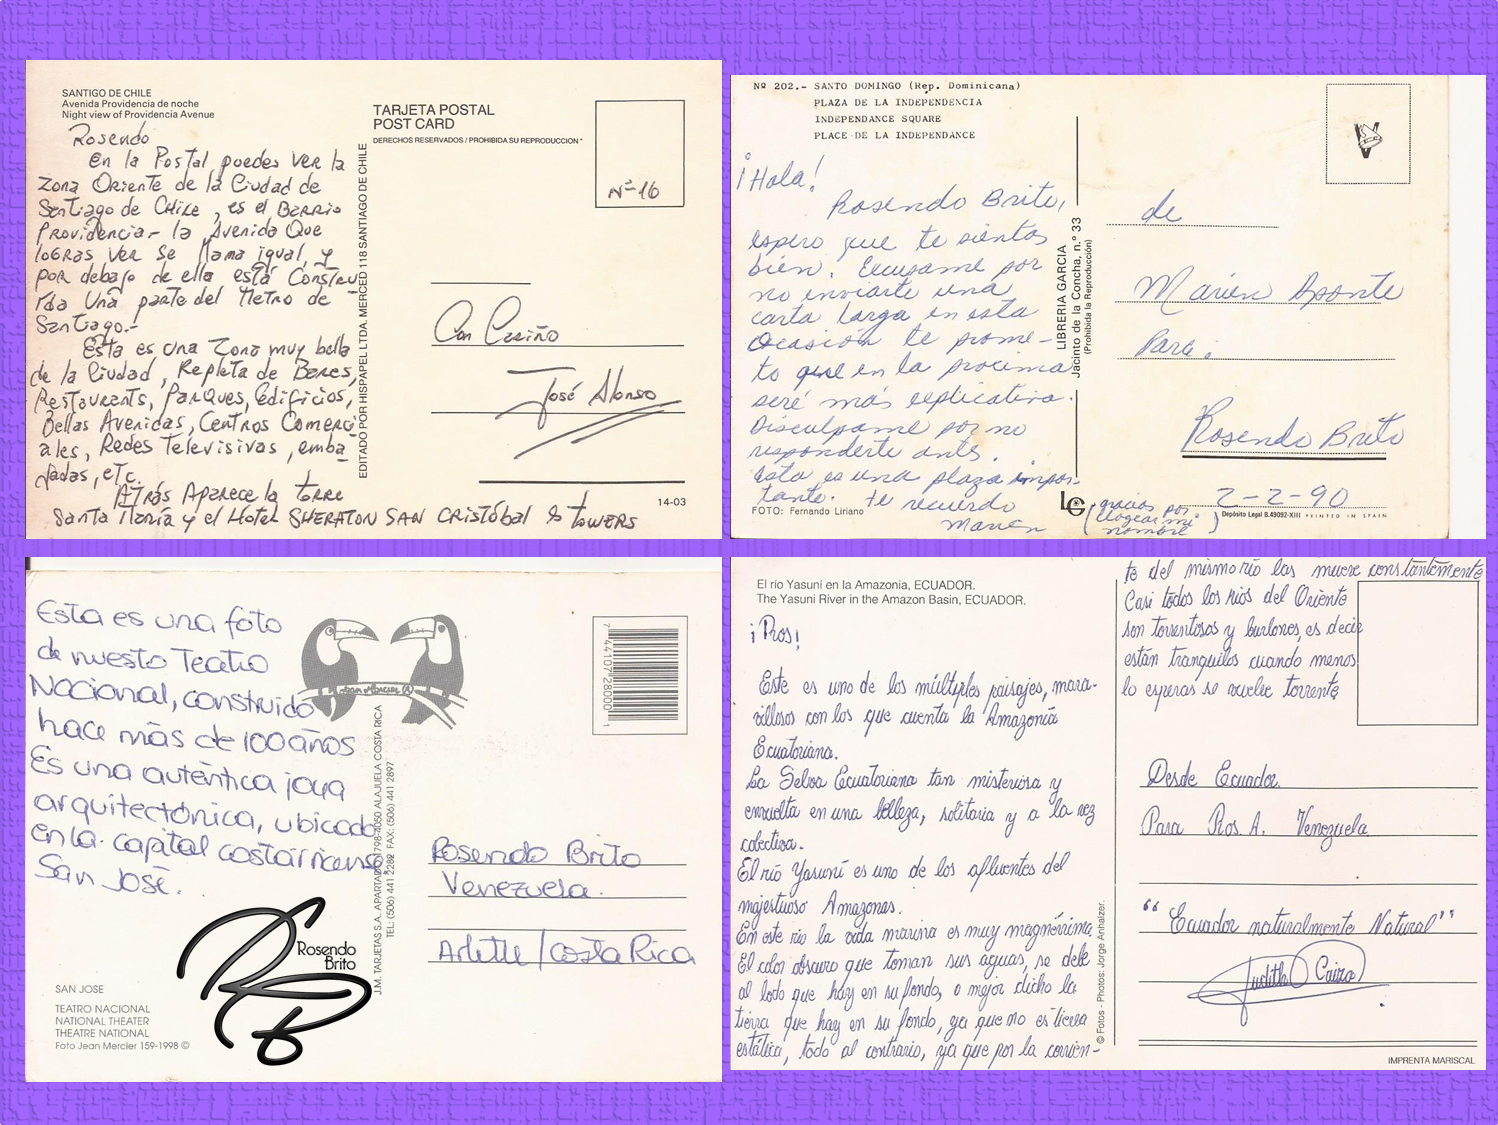 SANTIGO DE CHILE
Avenida Providencia de noche
Night view of Providencia Avenue
Rosendo
En la Postal puedes ver la
Zona Oriente de la Ciudad de
Santiago de CHILE, es el BARRIO
Providencia.- la Avenida Que
loGRas ver se llama igual, y
por debajo de ella está Constru-
ida Una parte del Metro de
Santiago.-
Esta es una Zona muy bella
de la Ciudad, Repleta de Bares,
Restaurants, Parques, Edificios,
Bellas Avenidas, Centros Comerci
ales, Redes Televisivas, emba-
jadas, etc.
Atrás Aparece la torre
Santa María y el Hotel SHERATON SAN CRISTóbal & towERS
EDITADO POR HISPAPEL LTDA. MERCED 118 SANTIAGO DE CHILE
TARJETA POSTAL
POST CARD
DERECHOS RESERVADOS / PROHIBIDA SU REPRODUCCION
Nº 16
Con Cariño
José Alonso
14-03
Nº 202.- SANTO DOMINGO (Rep. Dominicana)
PLAZA DE LA INDEPENDENCIA
INDEPENDANCE SQUARE
PLACE DE LA INDEPENDANCE
¡Hola!
Rosendo Brito,
espero que te sientas
bien. Excusame por
no enviarte una
carta larga en esta
ocasión te prome-
to que en la procima
seré más explicativa.
Disculpame por no
responderte antes.
Esta es una plaza impor-
tante. te recuerdo
Marien
FOTO: Fernando Liriano
LIBRERIA GARCIA
Jacinto de la Concha, n.º 33
(Prohibida la Reproducción)
de
Marien Aponte
Para:
Rosendo Brito
2-2-90
LG
(gracias por
nombre)
Depósito Legal B.49092-XIII PRINTED IN SPAIN
Esta es una foto
de nuesto Teatro
Nacional, construido
hace más de 100 años
Es una auténtica joya
arquitectónica, ubicada
en la capital costarricense
San José.
SAN JOSE
TEATRO NACIONAL
NATIONAL THEATER
THEATRE NATIONAL
Foto Jean Mercier 159-1998 ©
Rosendo
Brito
J.M. TARJETAS S.A. APARTADO 1798-4050 ALAJUELA COSTA RICA
TEL: (506) 441 2282 FAX: (506) 441 2897
7 44107 28000 1
Rosendo Brito
Venezuela.
Arlette / Costa Rica
El río Yasuní en la Amazonia, ECUADOR.
The Yasuni River in the Amazon Basin, ECUADOR.
¡Ros!
Este es uno de los múltiples paisajes, mara-
villosos con los que cuenta la Amazonía
Ecuatoriana.
La Selva Ecuatoriana tan misteriosa y
envuelta en una belleza, solitaria y a la vez
colectiva.
El río Yasuní es uno de los afluentes del
majestuoso Amazonas.
En este rio la vida marina es muy magnánima
El color obscuro que toman sus aguas, se debe
al lodo que hay en su fondo, o mejor dicho la
tierra que hay en su fondo, ya que no es tierra
estática, todo al contrario, ya que por la corrien-
te del mismo río las mueve constantemente
Casi todos los rios del Oriente
son torrentosos y burlones, es decir
están tranquilos cuando menos
lo esperas se vuelve torrente
© Fotos - Photos: Jorge Anhalzer.
Desde Ecuador.
Para Ros. A. Venezuela
"Ecuador naturalmente Natural"
Judith Cairo
IMPRENTA MARISCAL